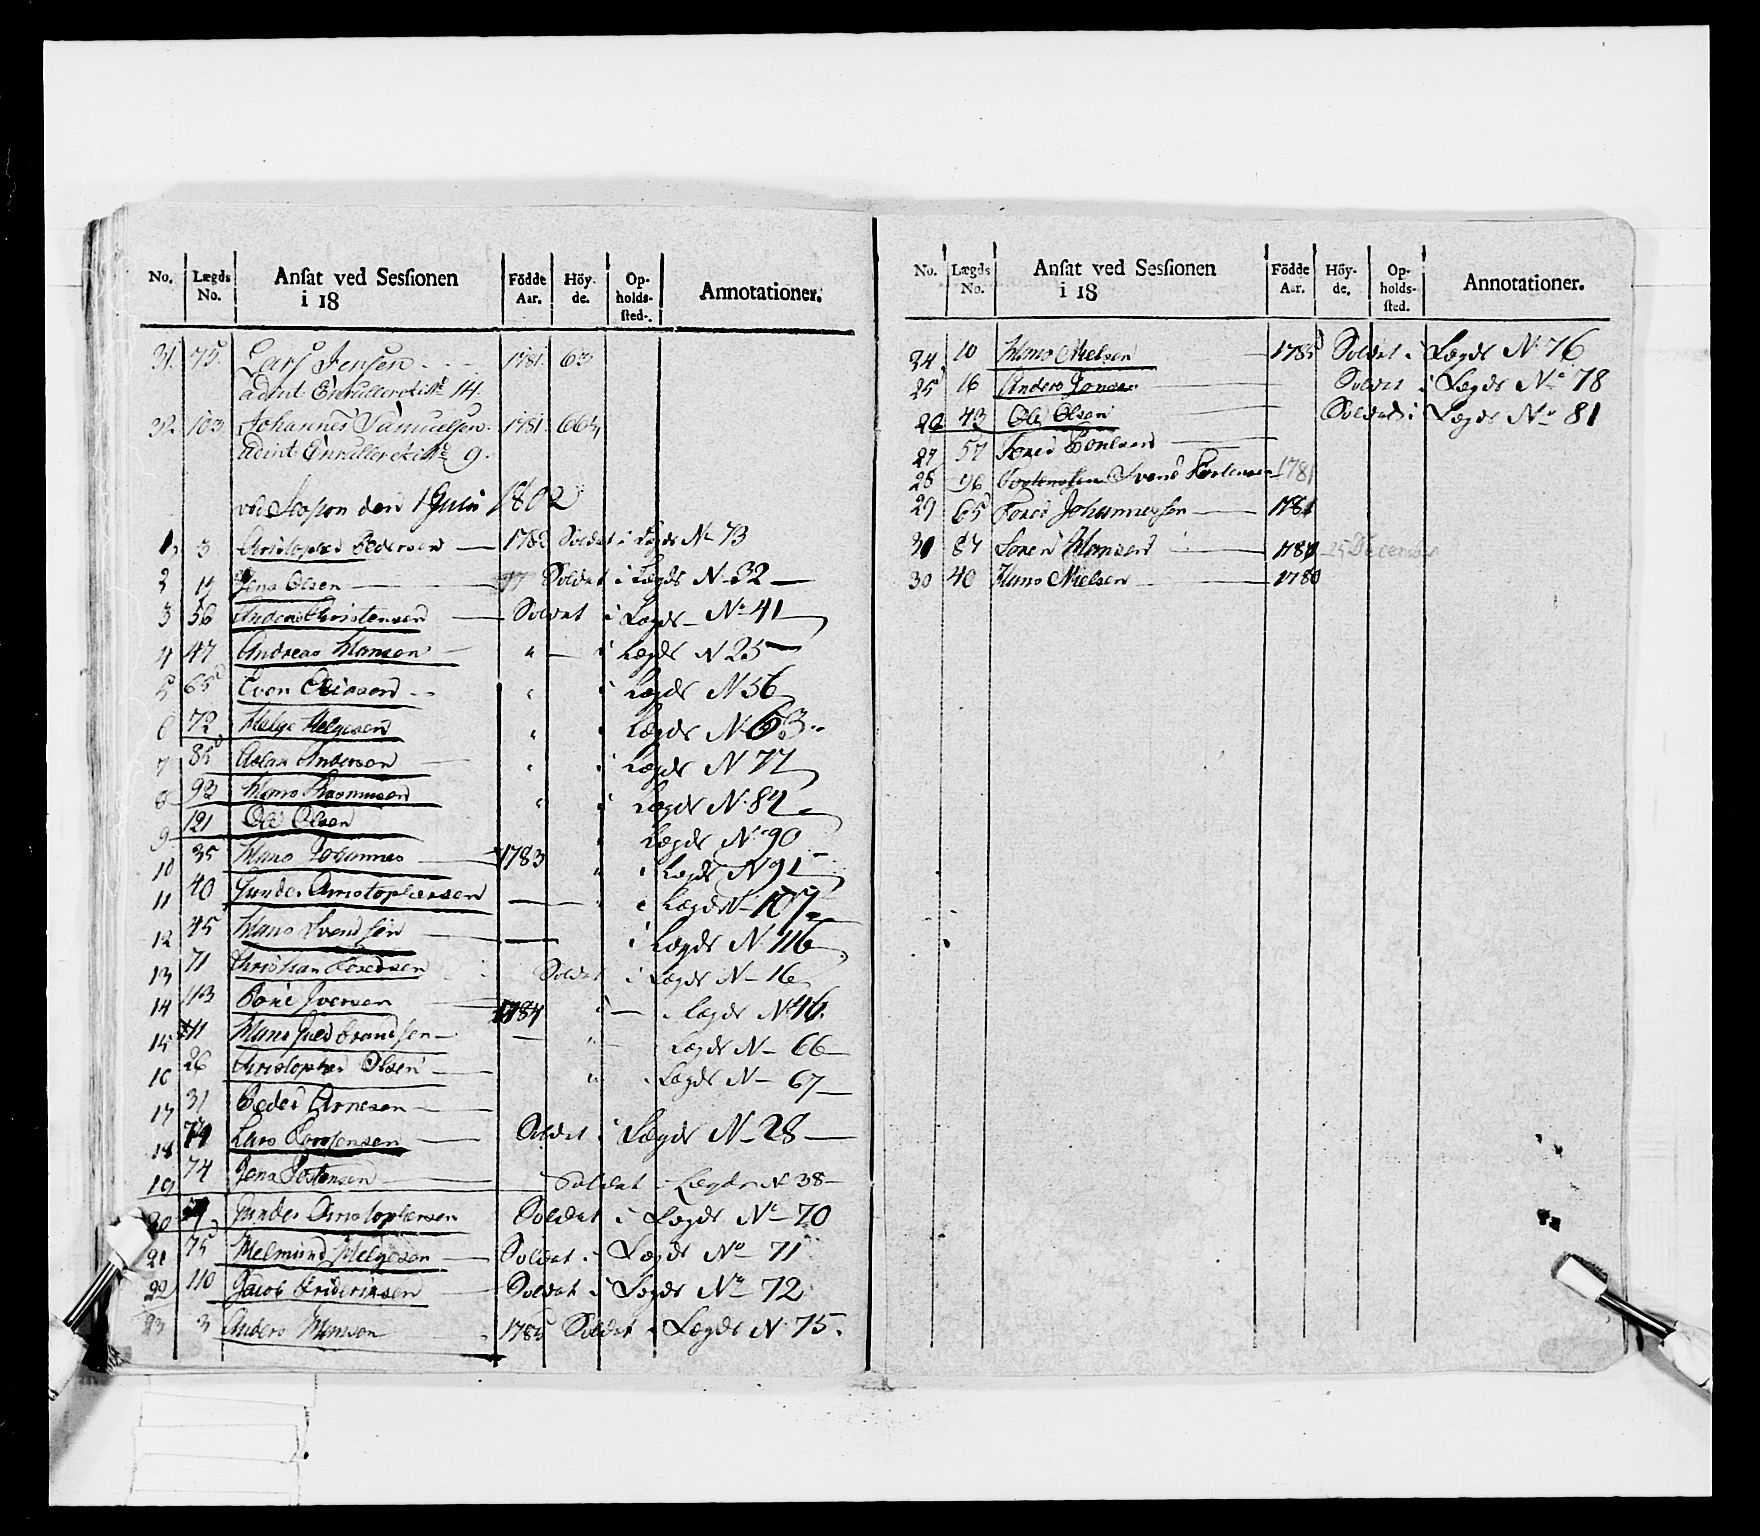 No. Lægds No. Ansat ved Sessionen i 18 Födde Aar. Höyde. Opholdssted. Annotationer.
31. 75. Lars Jensen 1781. 63
adint Enrulleret No 14.
32. 103 Johannes Samuelsen. 1781. 
adint Enrulleret No 9.
ved Session den 1 Juli 1802
1, 3 Christopher Pedersen — 1782 Soldat i Lægds No 73
2 Jens Olsen — Soldat i Lægds N 32 —
3 56 Anders Christensen — Soldat i Lægds No 41
4 47 Andreas Hansen — " — i Lægds N 25
5 65 Even " i Lægds N 56
6 72 Helge Helgesen " Lægds N 63
7 85 Anderson — " i Lægds N 77
8 93 Hans Rasmusen " i Lægds No 84
9 121 Ole Olsen " Lægds No 90
10 35 Hans Johannes — 1783 " i Lægds N 91
11 40 Gunder Christophersen — " i Lægds No 107
12 45 Hans Svendsen — i Lægds N 116
13 71 Christian Soldat i Lægds N 16
14 113 Iversen 1784 " — Lægds No 46.
15 11 Hans — " Lægds N — 66
16 26 Christopher Olsen — " Lægds N — 67
17 31 Peder Arnesen —
18 74 Lars — Soldat i Lægds N 28 —
19 74 Jens Tostensen — Soldat Lægds N 38 —
20 Gunder Christophersen Soldat i Lægds No 70
21 75 Helmund Helgesen — Soldat i Lægds No 71
22 110 Jacob Friderichsen — Soldat i Lægds No 72
23 3 Anders Hansen 1785 Soldat i Lægds N 75.
No. Lægds No. Ansat ved Sessionen i 18 Födde Aar. Höyde. Opholdssted. Annotationer.
24 10 Hans Nielsen — 1785 Soldat i Lægds No 76
25 16 Anders Jonsen — Soldat i Lægds No 78
26 43 Ole Olsen — Soldat i Lægds No 81
27 57
28 96 Svend 1781
29 65 Johannessen — 1781
31 87 Søren Hansen — 25 December
30 40 Hans Nielsen — 1780